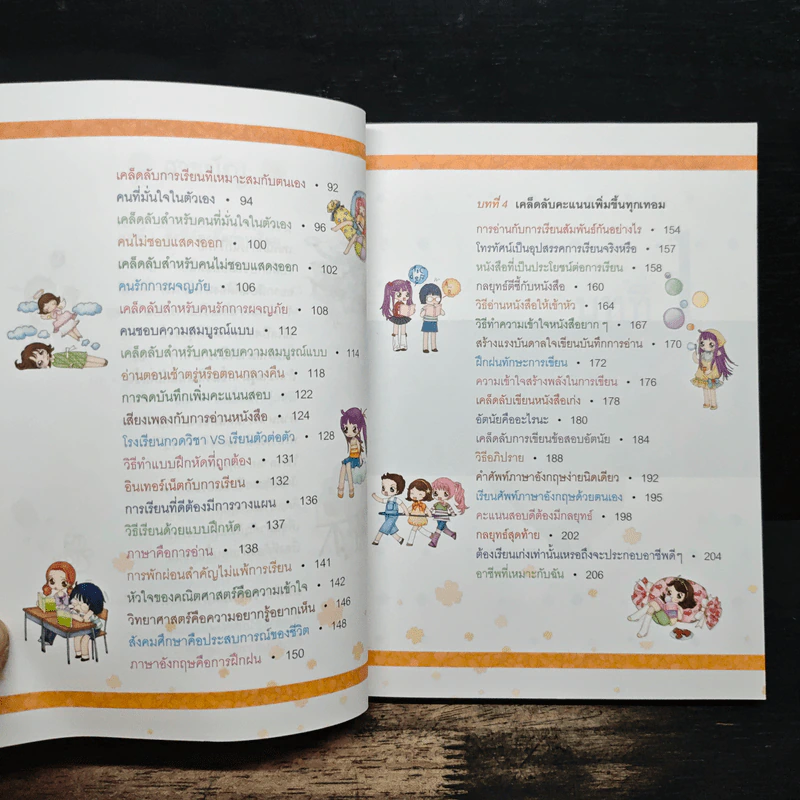 เคล็ดลับการเรียนที่เหมาะสมกับตนเอง • 92
คนที่มั่นใจในตัวเอง • 94
เคล็ดลับสำหรับคนที่มั่นใจในตัวเอง • 96
คนไม่ชอบแสดงออก • 100
เคล็ดลับสำหรับคนไม่ชอบแสดงออก • 102
คนรักการผจญภัย • 106
เคล็ดลับสำหรับคนรักการผจญภัย • 108
คนชอบความสมบูรณ์แบบ • 112
เคล็ดลับสำหรับคนชอบความสมบูรณ์แบบ • 114
อ่านตอนเช้าตรู่หรือตอนกลางคืน • 118
การจดบันทึกเพิ่มคะแนนสอบ • 122
เสียงเพลงกับการอ่านหนังสือ • 124
โรงเรียนกวดวิชา VS เรียนตัวต่อตัว • 128
วิธีทำแบบฝึกหัดที่ถูกต้อง • 131
อินเทอร์เน็ตกับการเรียน • 132
การเรียนที่ดีต้องมีการวางแผน • 136
วิธีเรียนด้วยแบบฝึกหัด • 137
ภาษาคือการอ่าน • 138
การพักผ่อนสำคัญไม่แพ้การเรียน • 141
หัวใจของคณิตศาสตร์คือความเข้าใจ • 142
วิทยาศาสตร์คือความอยากรู้อยากเห็น • 146
สังคมศึกษาคือประสบการณ์ของชีวิต • 148
ภาษาอังกฤษคือการฝึกฝน • 150
บทที่ 4 เคล็ดลับคะแนนเพิ่มขึ้นทุกเทอม
การอ่านกับการเรียนสัมพันธ์กันอย่างไร • 154
โทรทัศน์เป็นอุปสรรคการเรียนจริงหรือ • 157
หนังสือที่เป็นประโยชน์ต่อการเรียน • 158
กลยุทธ์ตีซี้กับหนังสือ • 160
วิธีอ่านหนังสือให้เข้าหัว • 164
วิธีทำความเข้าใจหนังสือยาก ๆ • 167
สร้างแรงบันดาลใจเขียนบันทึกการอ่าน • 170
ฝึกฝนทักษะการเขียน • 172
ความเข้าใจสร้างพลังในการเรียน • 176
เคล็ดลับเขียนหนังสือเก่ง • 178
อัตนัยคืออะไรนะ • 180
เคล็ดลับการเขียนข้อสอบอัตนัย • 184
วิธีอภิปราย • 188
คำศัพท์ภาษาอังกฤษง่ายนิดเดียว • 192
เรียนศัพท์ภาษาอังกฤษด้วยตนเอง • 195
คะแนนสอบดีต้องมีกลยุทธ์ • 198
กลยุทธ์สุดท้าย • 202
ต้องเรียนเก่งเท่านั้นเหรอถึงจะประกอบอาชีพดีๆ • 204
อาชีพที่เหมาะกับฉัน • 206